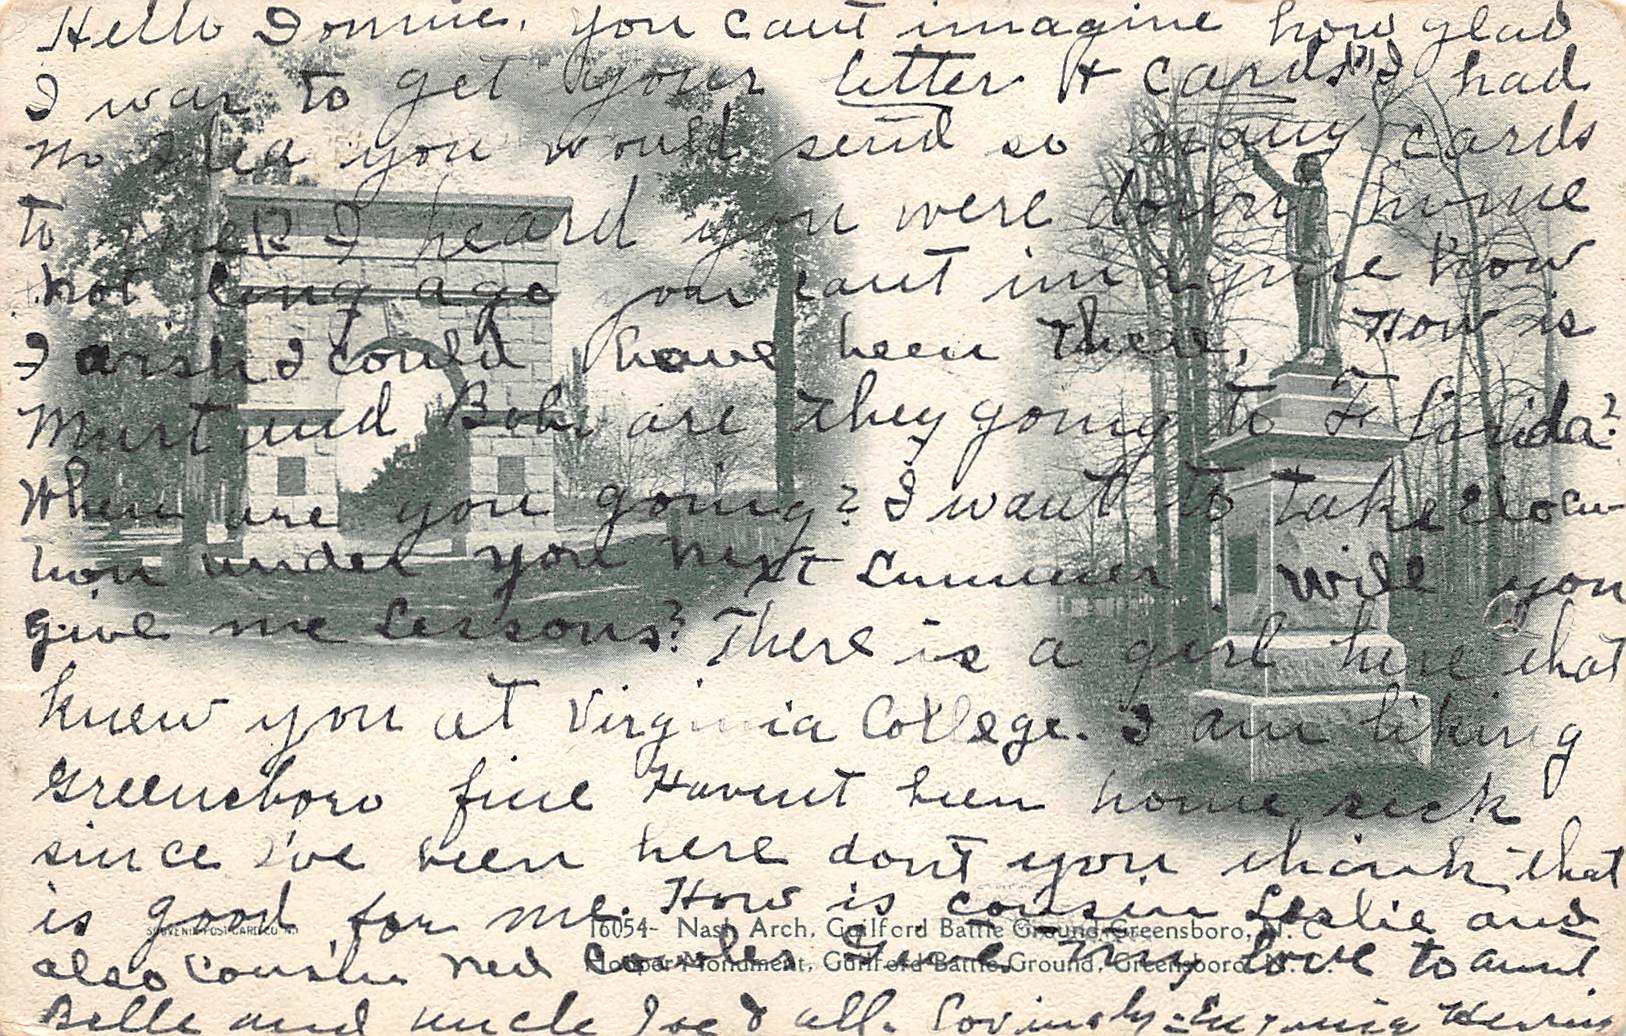 Hello Donnie, you cant imagine how glad
I was to get your letter & cards(?) I had
no idea you would send so many cards
to me(?) I heard you were down home
not long ago you cant imagine how
I wish I could have been there, How is
and Bob, are they going to Florida?
When are you going? I want to take elocu-
tion under you next Summer will you
give me Lessons? There is a girl here that
knew you at Virginia College. I am liking
Greensboro fine Havent been home sick
since I've been here dont you think that
is good for me. How is cousin Leslie and
SOUVENIR POST CARD CO. N.Y.
16054- Nash Arch, Guilford Battle Ground, Greensboro, N. C.
also Cousin Ned Give my love to aunt
Hooper Monument, Guilford Battle Ground, Greensboro, N. C.
Belle and uncle Joe & all. Lovingly-